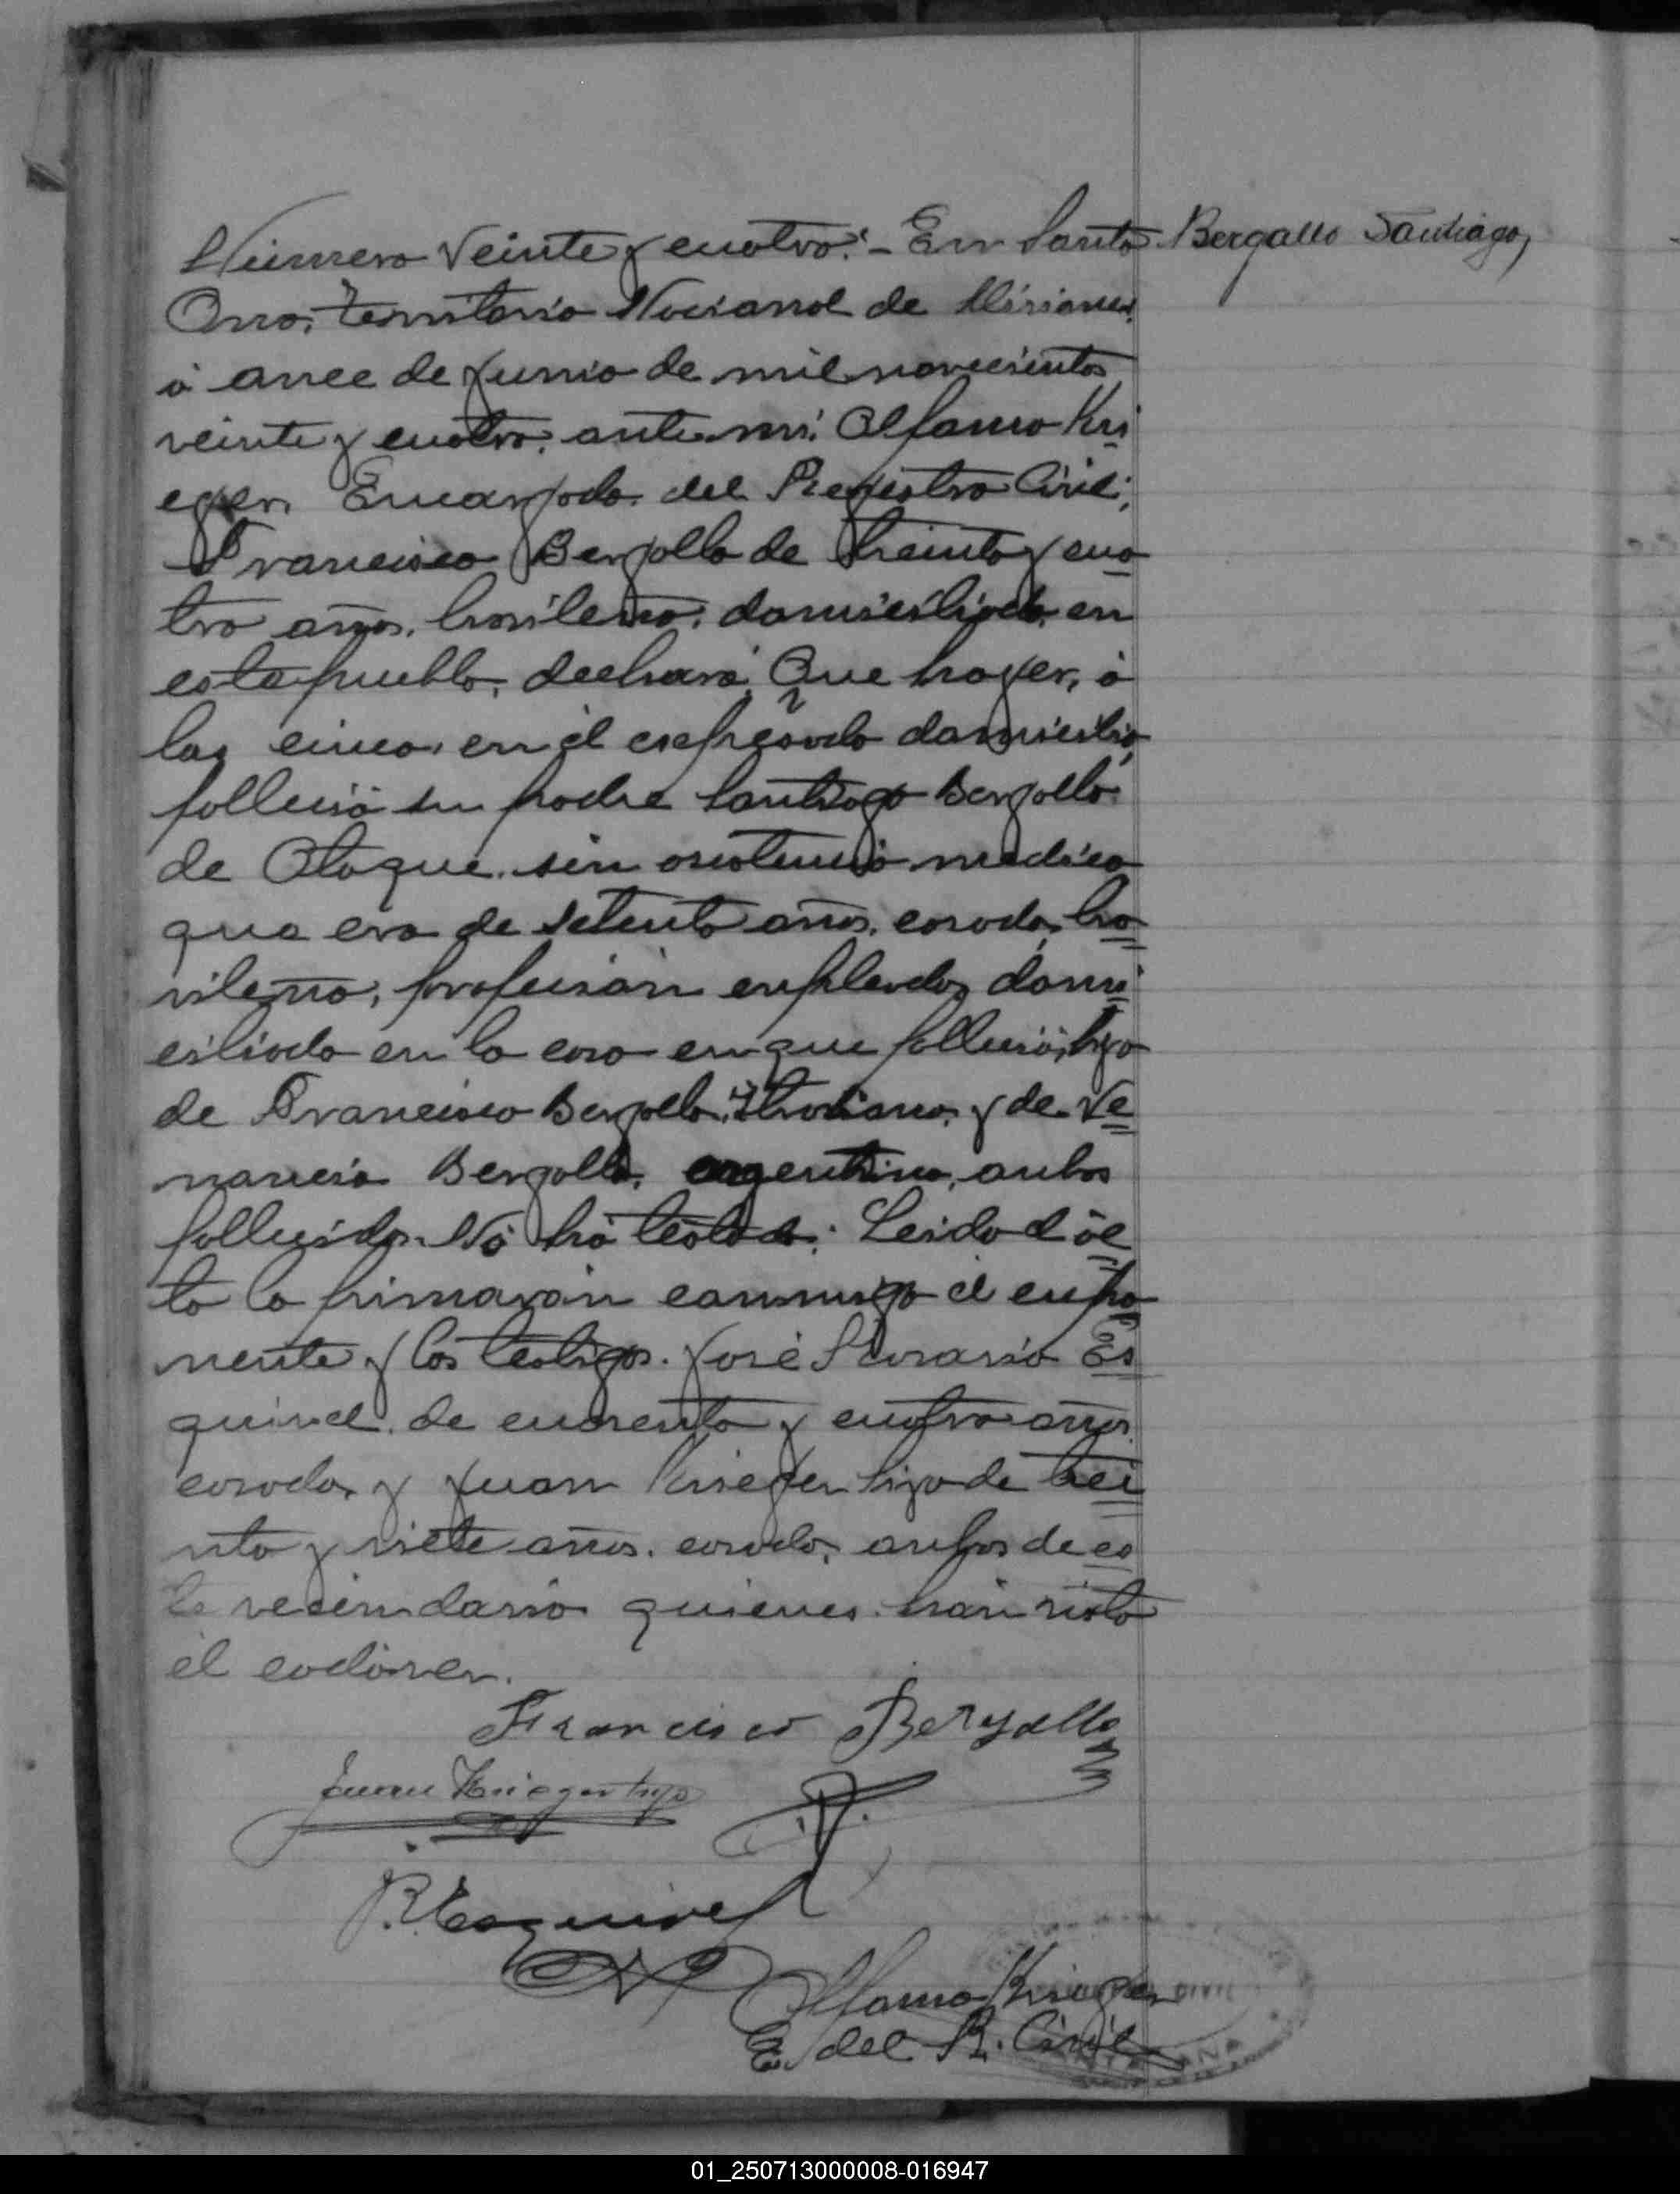 Número Veinte y cuatro.- En Santa
Bergallo Santiago,
Ana, territorio Nacional de Misiones,
á once de Junio de mil novecientos
veinte y cuatro, ante mi, Alfamo Kri
eger, Encargado del Registro Civil;
Francisco Bergallo de treinta y cua
tro años, brasilero, domiciliado en
este pueblo, declaró: Que hayer, á
las cinco, en el expresado domicilio
falleció su padre Santiago Bergallo
de Ataque, sin asistencia medica
que era de setenta años, casado, bra
silero, profesión empleado, domi
ciliado en la casa en que falleció, hijo
de Francisco Bergallo, Italiano, y de Ve
nancia Bergallo, argentina, ambos
fallecidos. Nó há testado. Leida el ac
ta la firmaron conmigo el expo
nente y los testigos. José Rosario Es
quivel, de cuarenta y cuatro años,
casado, y Juan Krieger hijo de trei
nta y siete años, casado, ambos de es
te vecindario quienes han visto
el cadáver.
Francisco Bergallo
Juan Krieger hijo
R. Esquivel
Alfamo Krieger
E. del R. Civil
CIVIL
01_250713000008-016947